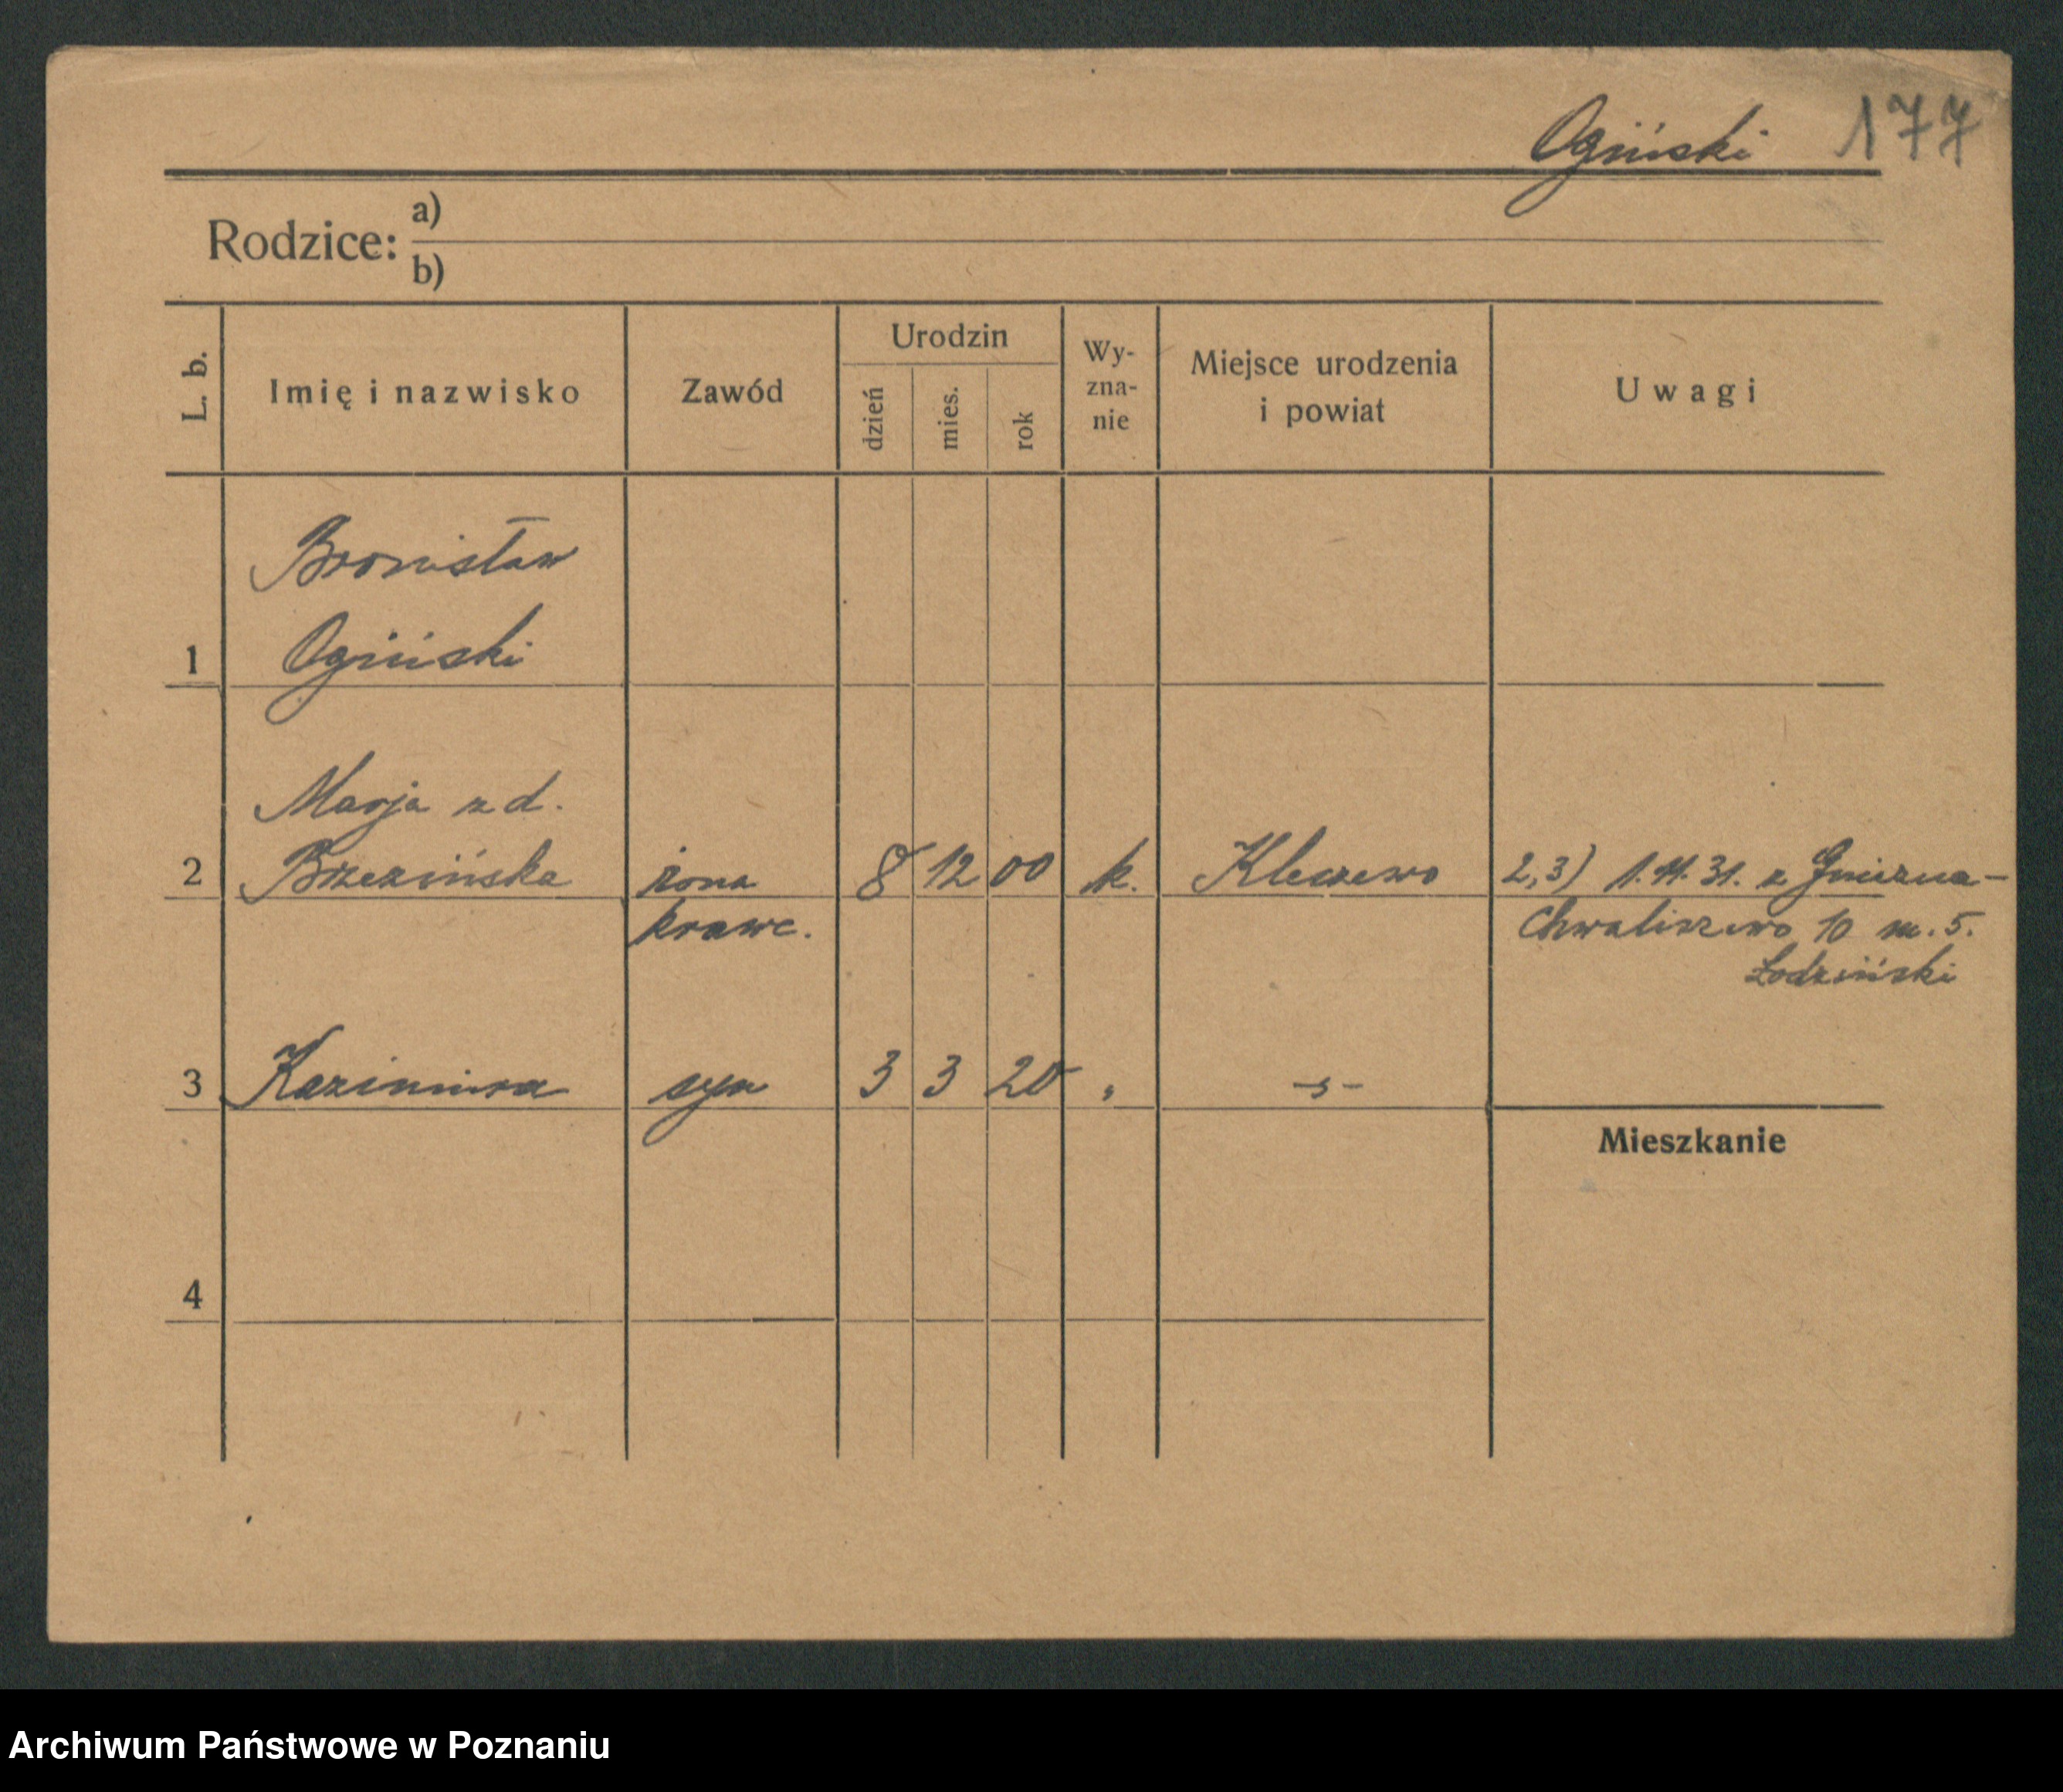 Ogiński 177
Rodzice: a)
b)
L. b. Imię i nazwisko Zawód Urodzin dzień mies. rok Wy-zna-nie Miejsce urodzenia i powiat Uwagi
Bronisław
1 Ogiński
Marja z d.
2 Brzezińska żona 8 12 00 k. Kleczewo 2,3) 1.11.31. z Gniezna-
krawc. Chwaliszewo 10 m. 5.
Łodziński
3 Kazimiera syn 3 3 20 „ -„-
Mieszkanie
4
Archiwum Państwowe w Poznaniu